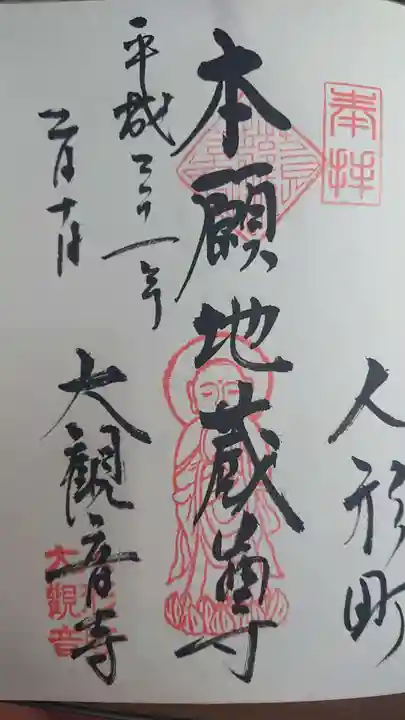 奉拝
人形町
本願地蔵尊
平成三十一年
二月十日
大観音寺
大観音